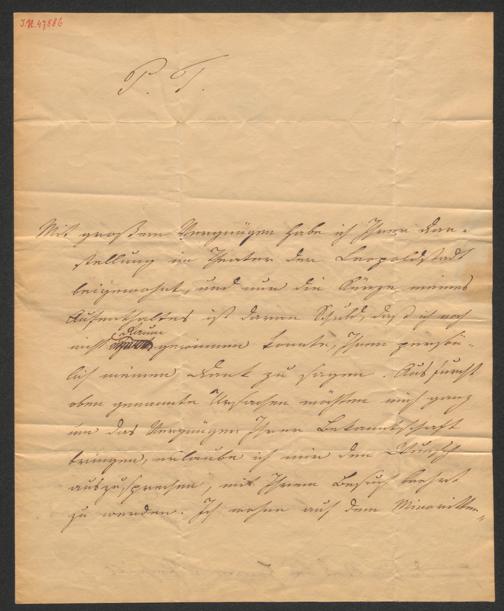 I.N. 47886
P. T.
Mit großem Vergnügen habe ich Ihrer Dar-
stellung im Theater der Leopoldstadt
beigewohnt, und nur die Kürze meines
Aufenthaltes ist daran Schuld, daß ich noch
nicht Raum gewinnen konnte, Ihnen persön-
lich meinen Dank zu sagen. Aus Furcht
oben genannte Ursachen möchten mich ganz
um das Vergnügen Ihrer Bekanntschaft
bringen, erlaube ich mir den Wunsch
auszusprechen, mit Ihrem Besuch beehrt
zu werden. Ich wohne auf dem Minoritten-